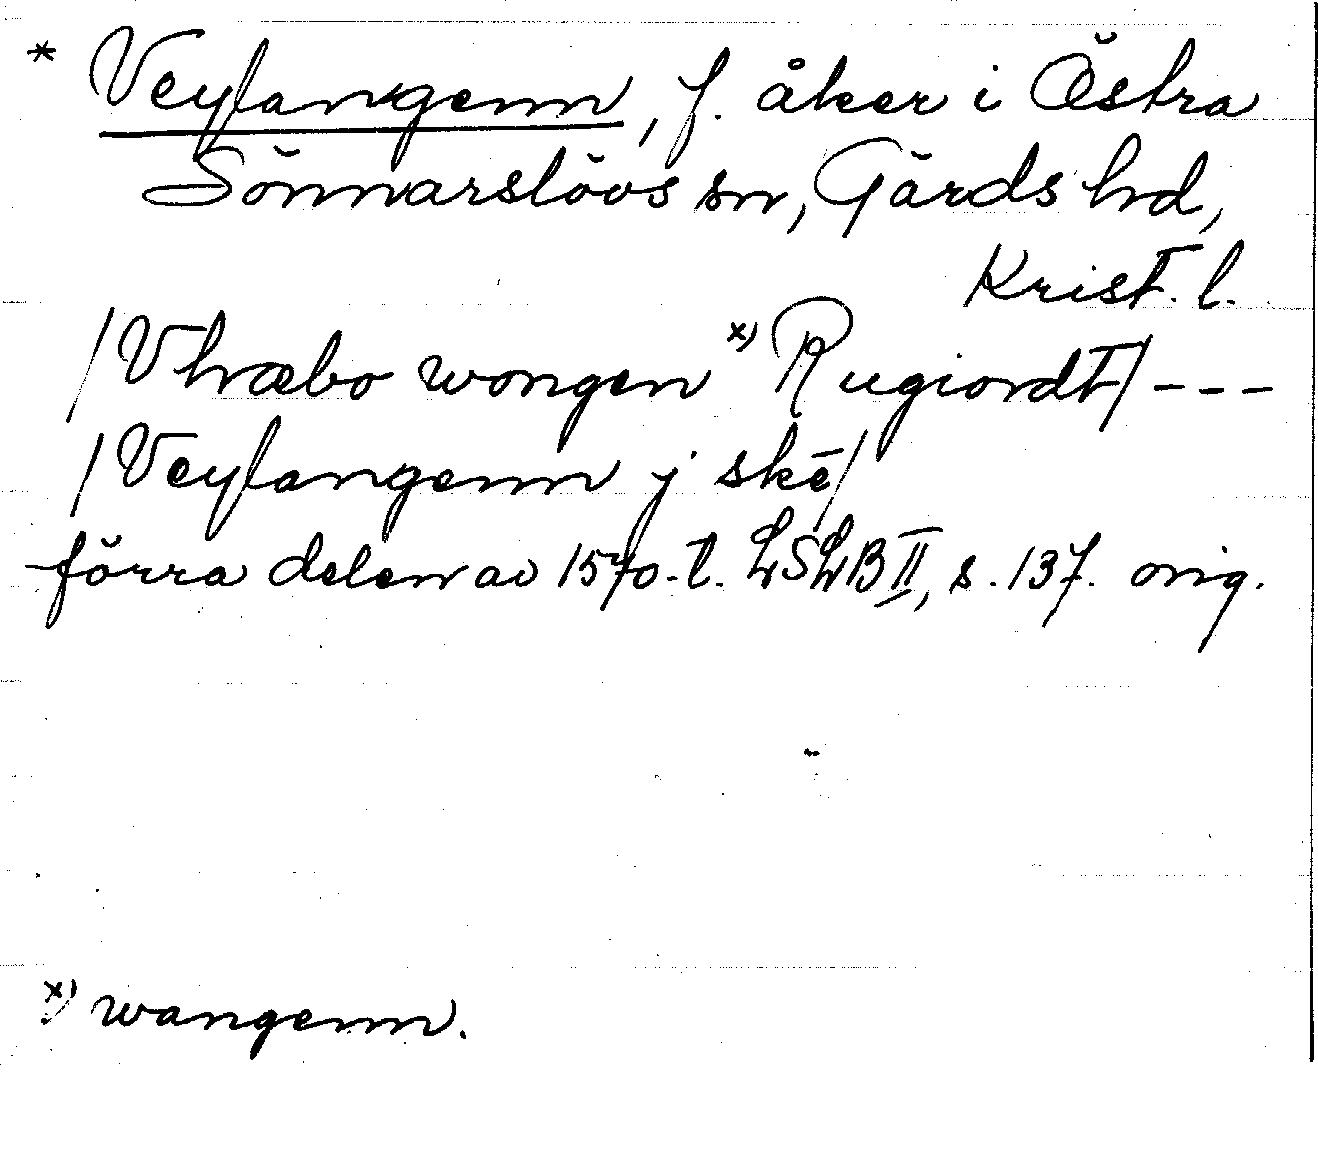 * Veylangenn, f. åker i Östra
Sönnarslövs sn, Gärds hd,
Krist. l.
/Vhræbo wongen x) Rugiordt/ ---
/Veylangenn j skē/
förra delen av 1570-t. LSLB II, s. 137. orig.
x) wangenn.